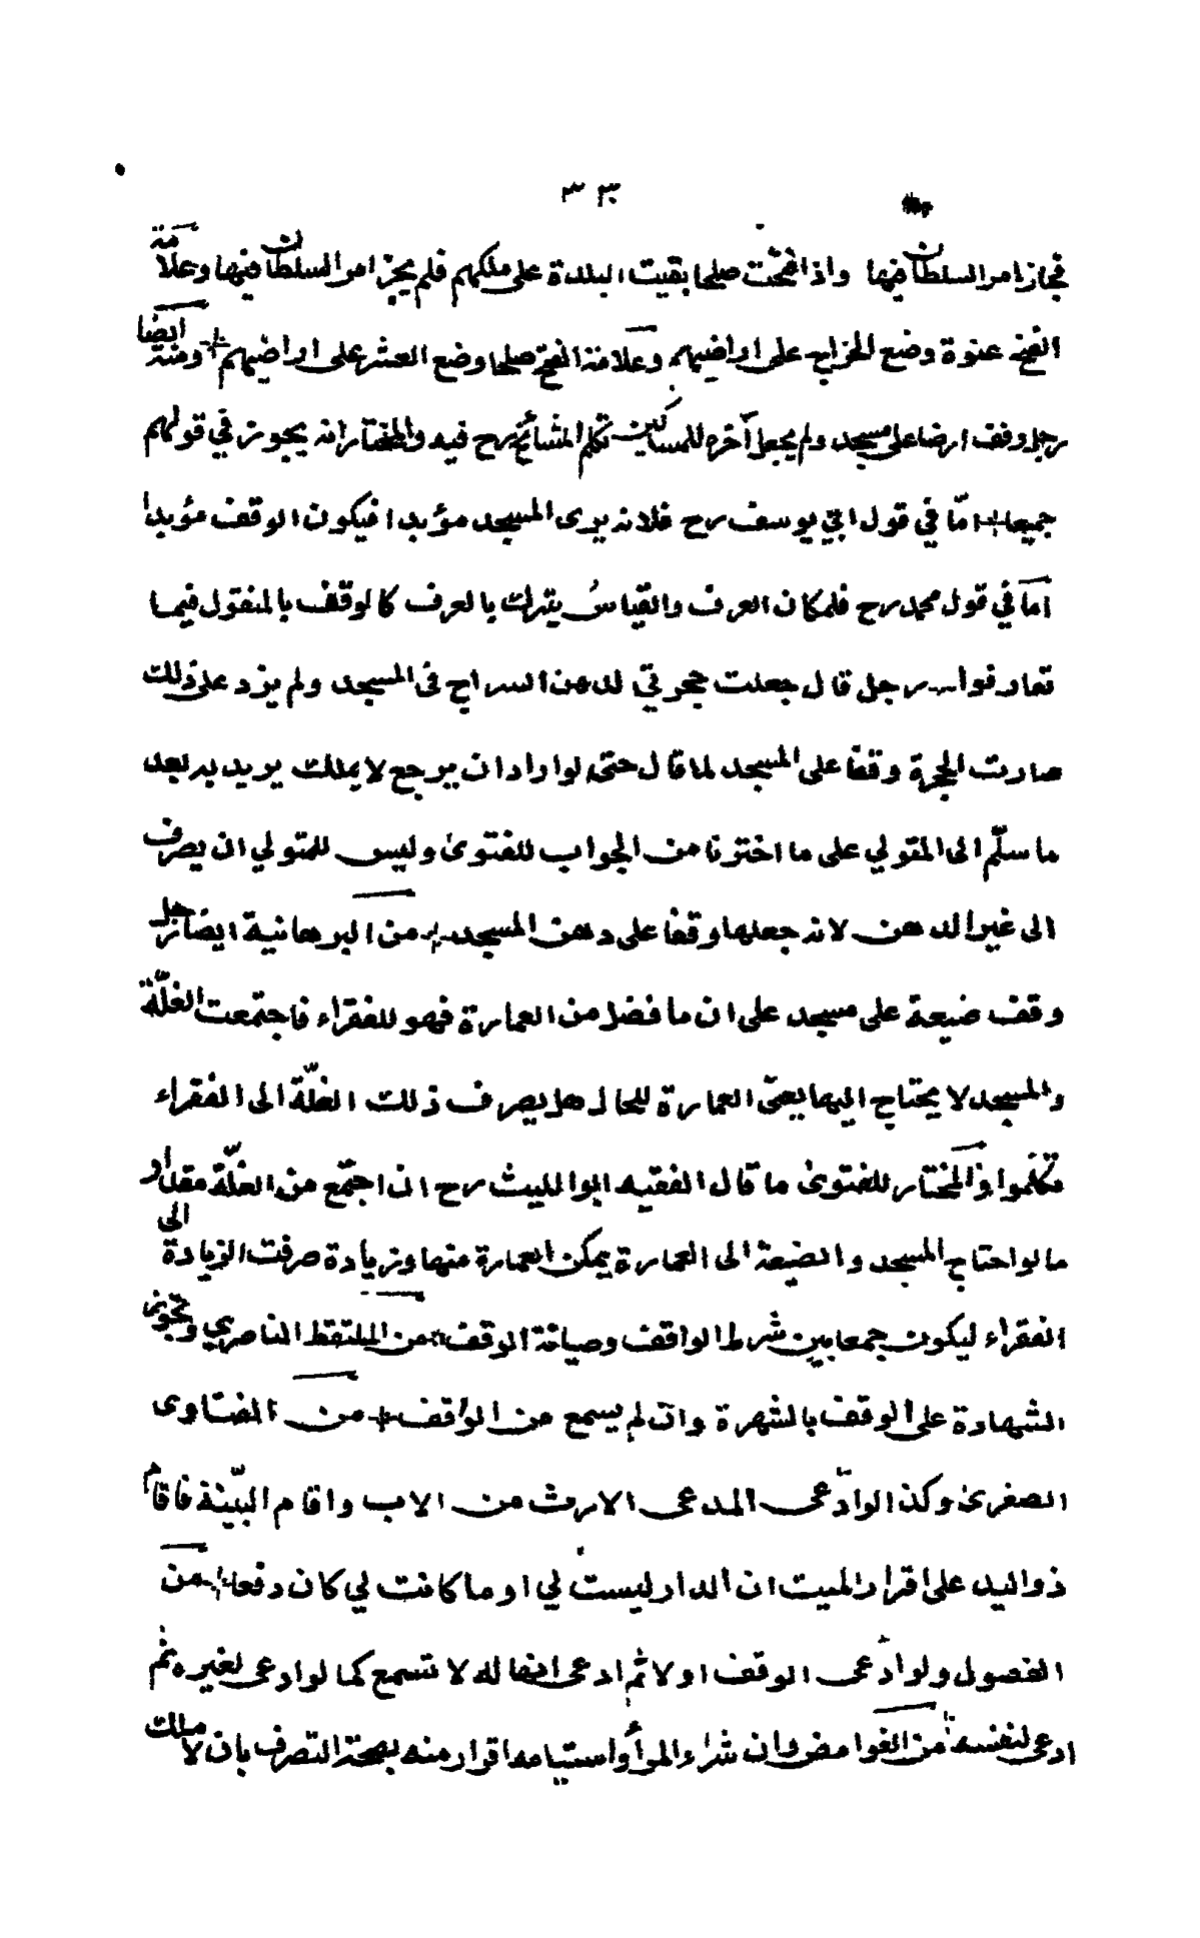 ٣٣
فجاز امر السلطان فيها واذا فتحت صلحا بقيت البلدة على ملكهم فلم يجز امر السلطان فيها وعلامة
الفتح عنوة وضع الخراج على اراضيهم وعلامة الفتح صلحا وضع العشر على اراضيهم ومنه ايضا
رجل وقف ارضا على مسجد ولم يجعل آخره للمساكين تكلم المشائخ رح فيه والمختار انه يجوز في قولهم
جميعا امّا في قول ابي يوسف رح فلانه يرى المسجد مؤبدا فيكون الوقف مؤبدا
امّا في قول محمد رح فلمكان العرف والقياس يترك بالعرف كالوقف بالمنقول فيما
تعارفوا رجل قال جعلت حجرتي لدهن السراج في المسجد ولم يزد على ذلك
صارت الحجرة وقفا على المسجد لما قال حتى لو اراد ان يرجع لا يملك يريد به بعد
ما سلّم الى المتولي على ما اخترنا من الجواب للفتوى وليس للمتولي ان يصرف
الى غير الدهن لانه جعلها وقفا على دهن المسجد من البرهانية ايضا رجل
وقف ضيعة على مسجد على ان ما فضل من العمارة فهو للفقراء فاجتمعت الغلّة
والمسجد لا يحتاج اليها يعني العمارة للحال هل يصرف ذلك الغلّة الى الفقراء
تكلموا والمختار للفتوى ما قال الفقيه ابو الليث رح ان اجتمع من الغلّة مقدار
ما لو احتاج المسجد والضيعة الى العمارة يمكن العمارة منها وزيادة صرفت الزيادة الى
الفقراء ليكون جمعا بين شرط الواقف وصيانة الوقف من الملتقط الناصري وتجوز
الشهادة على الوقف بالشهرة وان لم يسمع من الواقف من الفتاوى
الصغرى وكذا لو ادّعى المدعى الارث من الاب واقام البيّنة فاقام
ذو اليد على اقرار الميت ان الدار ليست لي او ما كانت لي كان دفعا من
الفصول ولو ادعى الوقف اولا ثم ادعى انها له لا تسمع كما لو ادعى لغيره ثم
ادعى لنفسه من الغوامض وان شراء المرأ واستيامه اقرار منه بصحة التصرف بان لا ملك